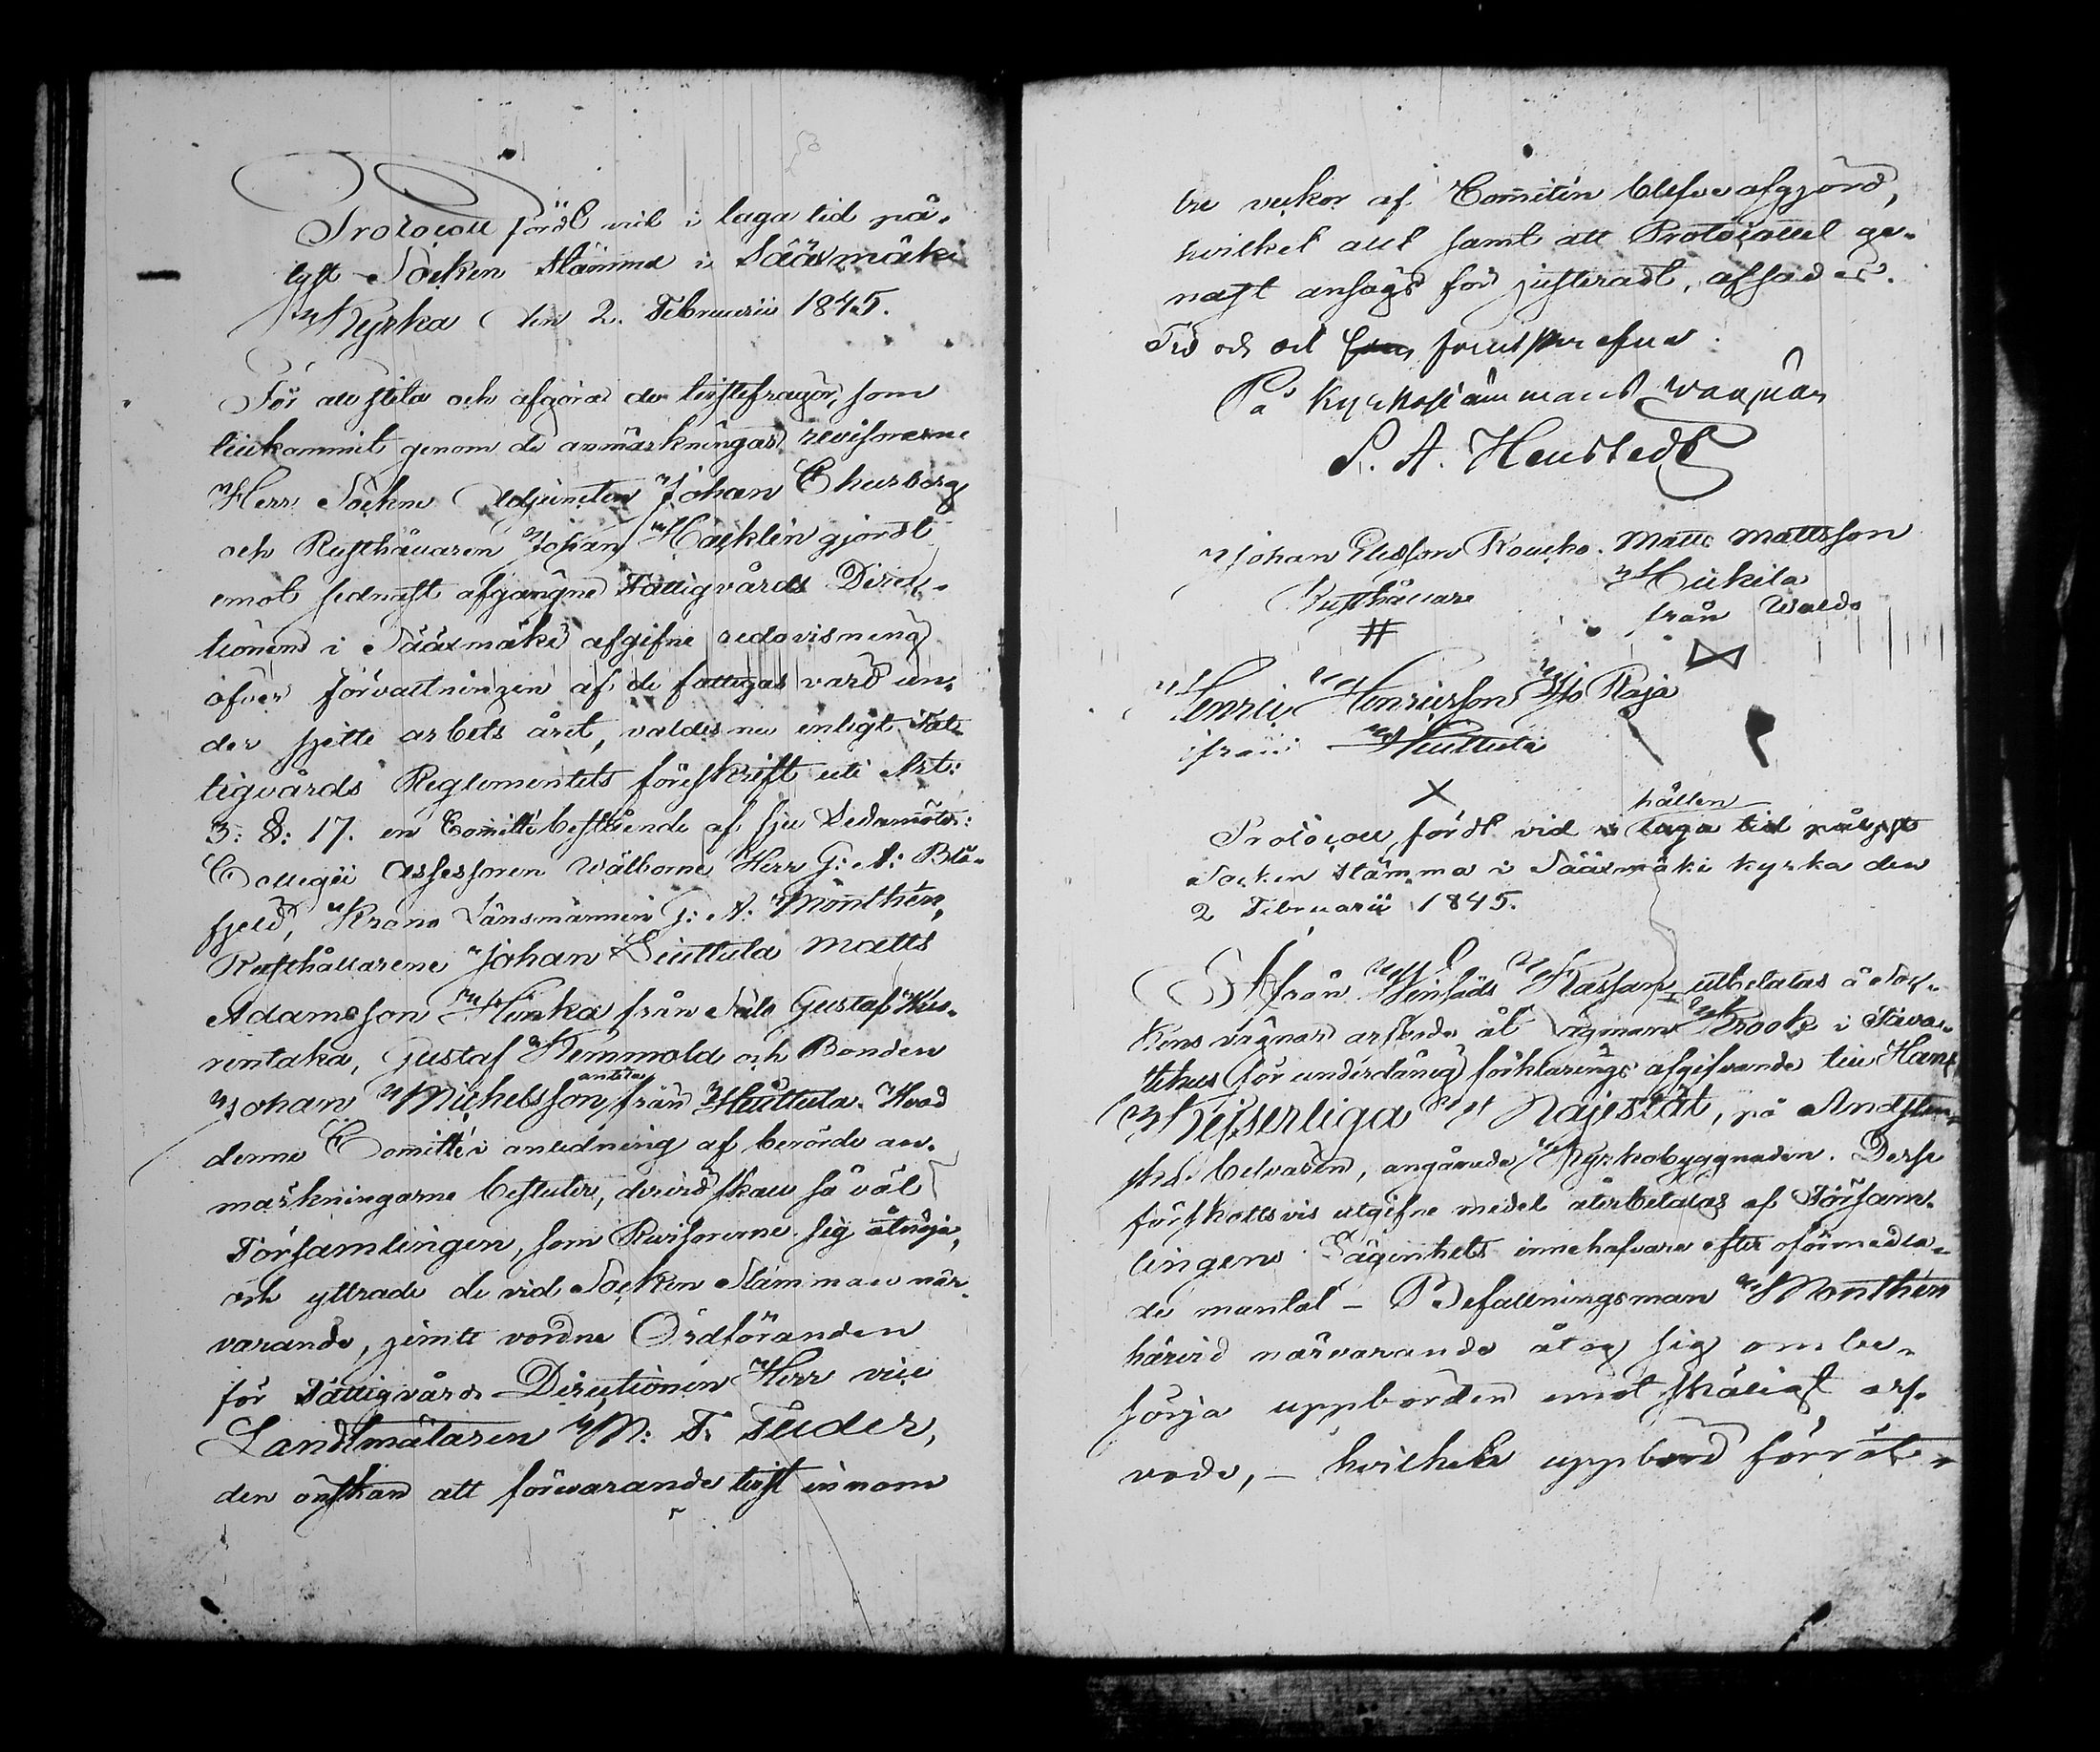 Protocoll fördt vid i laga tid på-
lyst Socken Stämma i Sääxmäki
Kyrka den 2. Februarii 1845.
För att slita och afgöra de tvistefrågor, som
tillkommit genom de anmärkningar revisorerne
Herr Sockne Adjuncten Johan Thurberg
och Rusthållaren Johan Häcklin gjordt
emot sednast afgångne Fattigvårds Direc-
tionens i Sääxmäki afgifne redovisning
öfver förvaltningen af de fattigas vård un-
der sjette arbets året, valdes nu enligt Fat-
tigvårds Reglementets föreskrift uti Art:
3: §: 17. en Comitté bestående af sju Ledamöter:
Collegii Assessoren Wälborne Herr G: A: Blå-
fjeld, Krono Länsmannen G: A: Monthén,
Rusthållarene Johan Liuttula Matts
Adamsson Hinka från Sala Gustaf
rentaka, Gustaf Kemmola och Bonden
Johan Michelsson Anttila från Huittula. Hvad
denne Comitté i anledning af berörde an-
märkningarne besluter, dervid skall så väl
Församlingen, som Revisorerne sig åtnöja,
och yttrade de vid Socken Stämman när-
varande, jemte vordne Ordföranden
för Fattigvårds Directionen Herr vice
Landtmätaren M: F. Tuder,
den önskan att förevarande tvist innom
tre veckor af Comitén blefve afgjord,
hvilket allt samt att Protocollet ge-
nast ansågs för justeradt, afsades.
Tid och ort som förut skrefne.
På Kyrkostämmans wägnar
S. A. Heurstedt
Johan Eliasson Rouhko. Matts Mattsson
Rusthållare Hiukila
# från Waldo
Henric Henricsson Iso Raja
ifrån Huittula
X hållen
Protocoll, fördt vid i laga tid pålyst
Socken Stämma i Sääxmäki Kyrka den
2 Februarii 1845.
S. D. Ifrån Vinsäds Kassan utbetalas å Soc-
kens vägnar arfvode åt Lagman Krook i Tava-
stehus för underdånig förklarings afgifvande till Hans
Kejserliga Majestät, på
besvären, angående Kyrkobyggnaden. Desse
förskottsvis utgifne medel återbetalas af Försam-
lingens Lägenhets innehafvare efter oförmedla-
de mantal – Befallningsman Monthén
härvid närvarande åtog sig ombe-
sörja uppbörden emot skäligt arf-
vode, – hvilken uppbörd förrät-